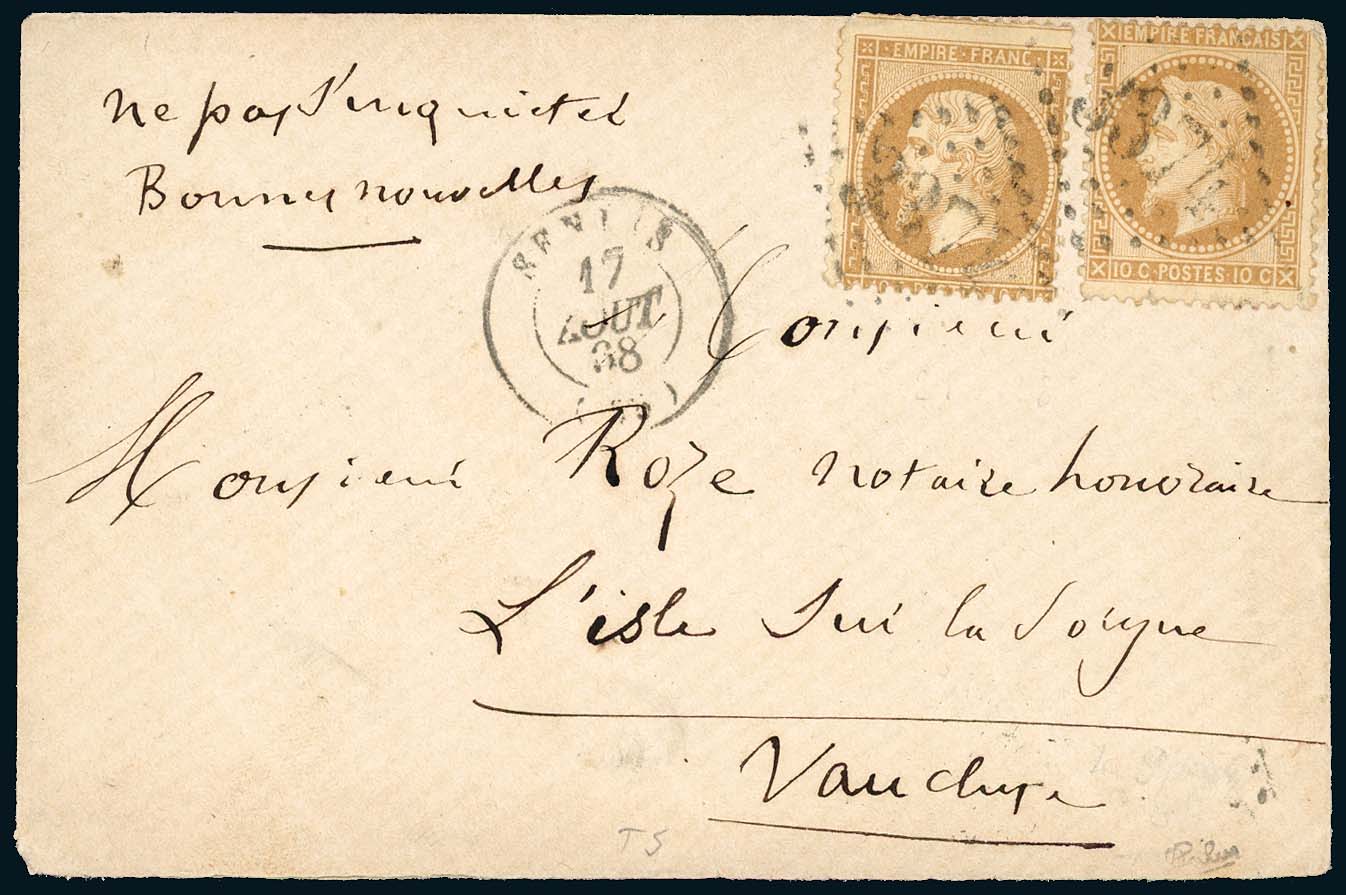 ne pas s'inquieter
Bonnes nouvelles
EMPIRE FRANC
EMPIRE FRANÇAIS
10 C · POSTES · 10 C
SENLIS
17
AOUT
68
Monsieur
Monsieur Roze notaire honoraire
L'isle sur la Sorgue
Vaucluse
TS